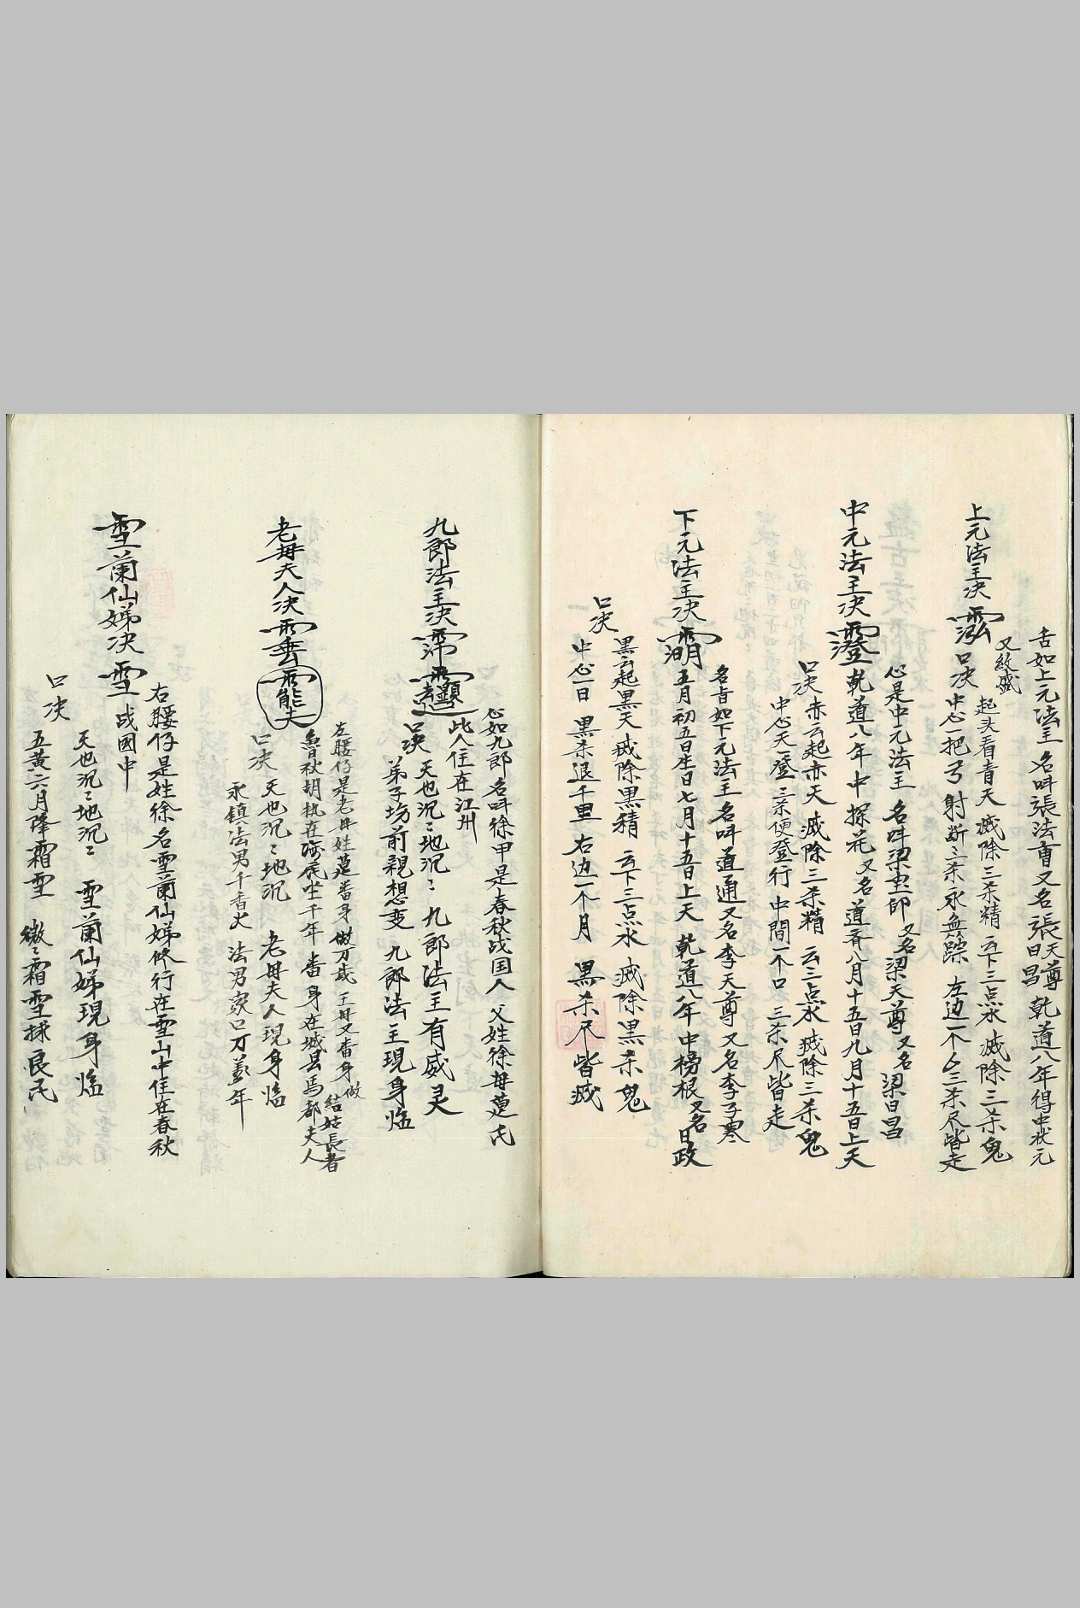 舌如上元法主名呌張法 又名張天尊 日昌 乾道八年得中状元
上元法主决
又紋
起头看青天 滅除三杀精 云下三点水 滅除三杀鬼
口决 中心一把弓 射断三杀永無踪 左边一个 三杀尽皆走
心是中元法王 名呌梁 又名梁天尊 又名 梁日昌
中元法主决 乾道八年中探花 又名道 八月十五日九月十五日上天
口决 赤云起赤天 滅除三杀精 云三点水 滅除三杀鬼
中心天一登 三杀便登行 中間一个口 三杀尽皆走
名旨如下元法王名呌道通 又名李天尊 又名李子寒
下元法主决 五月初五日生日七月十五日上天 乾道八年中榜 又名日政
口决 黑云起黑天 滅除黑精 云下三点水 滅除黑杀鬼
中心一日 黑杀退千里 右边一个月 黑杀尽皆滅
心如九郎名呌徐甲是春秋战国人 父姓徐母 氏
九郎法主决 此人住在江州
口决 天也沉〻地沉〻 九郎法主有威灵
弟子坊前親想变 九郎法主現身临
左腰仔是老母姓 番身做万 王母又番身做
老母夫人决 魯秋胡执在海底坐千年 番身在城县馬都夫人 结姑長者
口决 天也沉〻地沉 老母夫人現身临
永鎮法男千香火 法男家口万 年
右腰仔是姓徐名雪蘭仙娣 修行在雪山中住在春秋
雪蘭仙娣决 雪 战國中
口决 天也沉〻地沉〻 雪蘭仙娣現身临
五黄六月降霜雪 微〻霜雪 良民